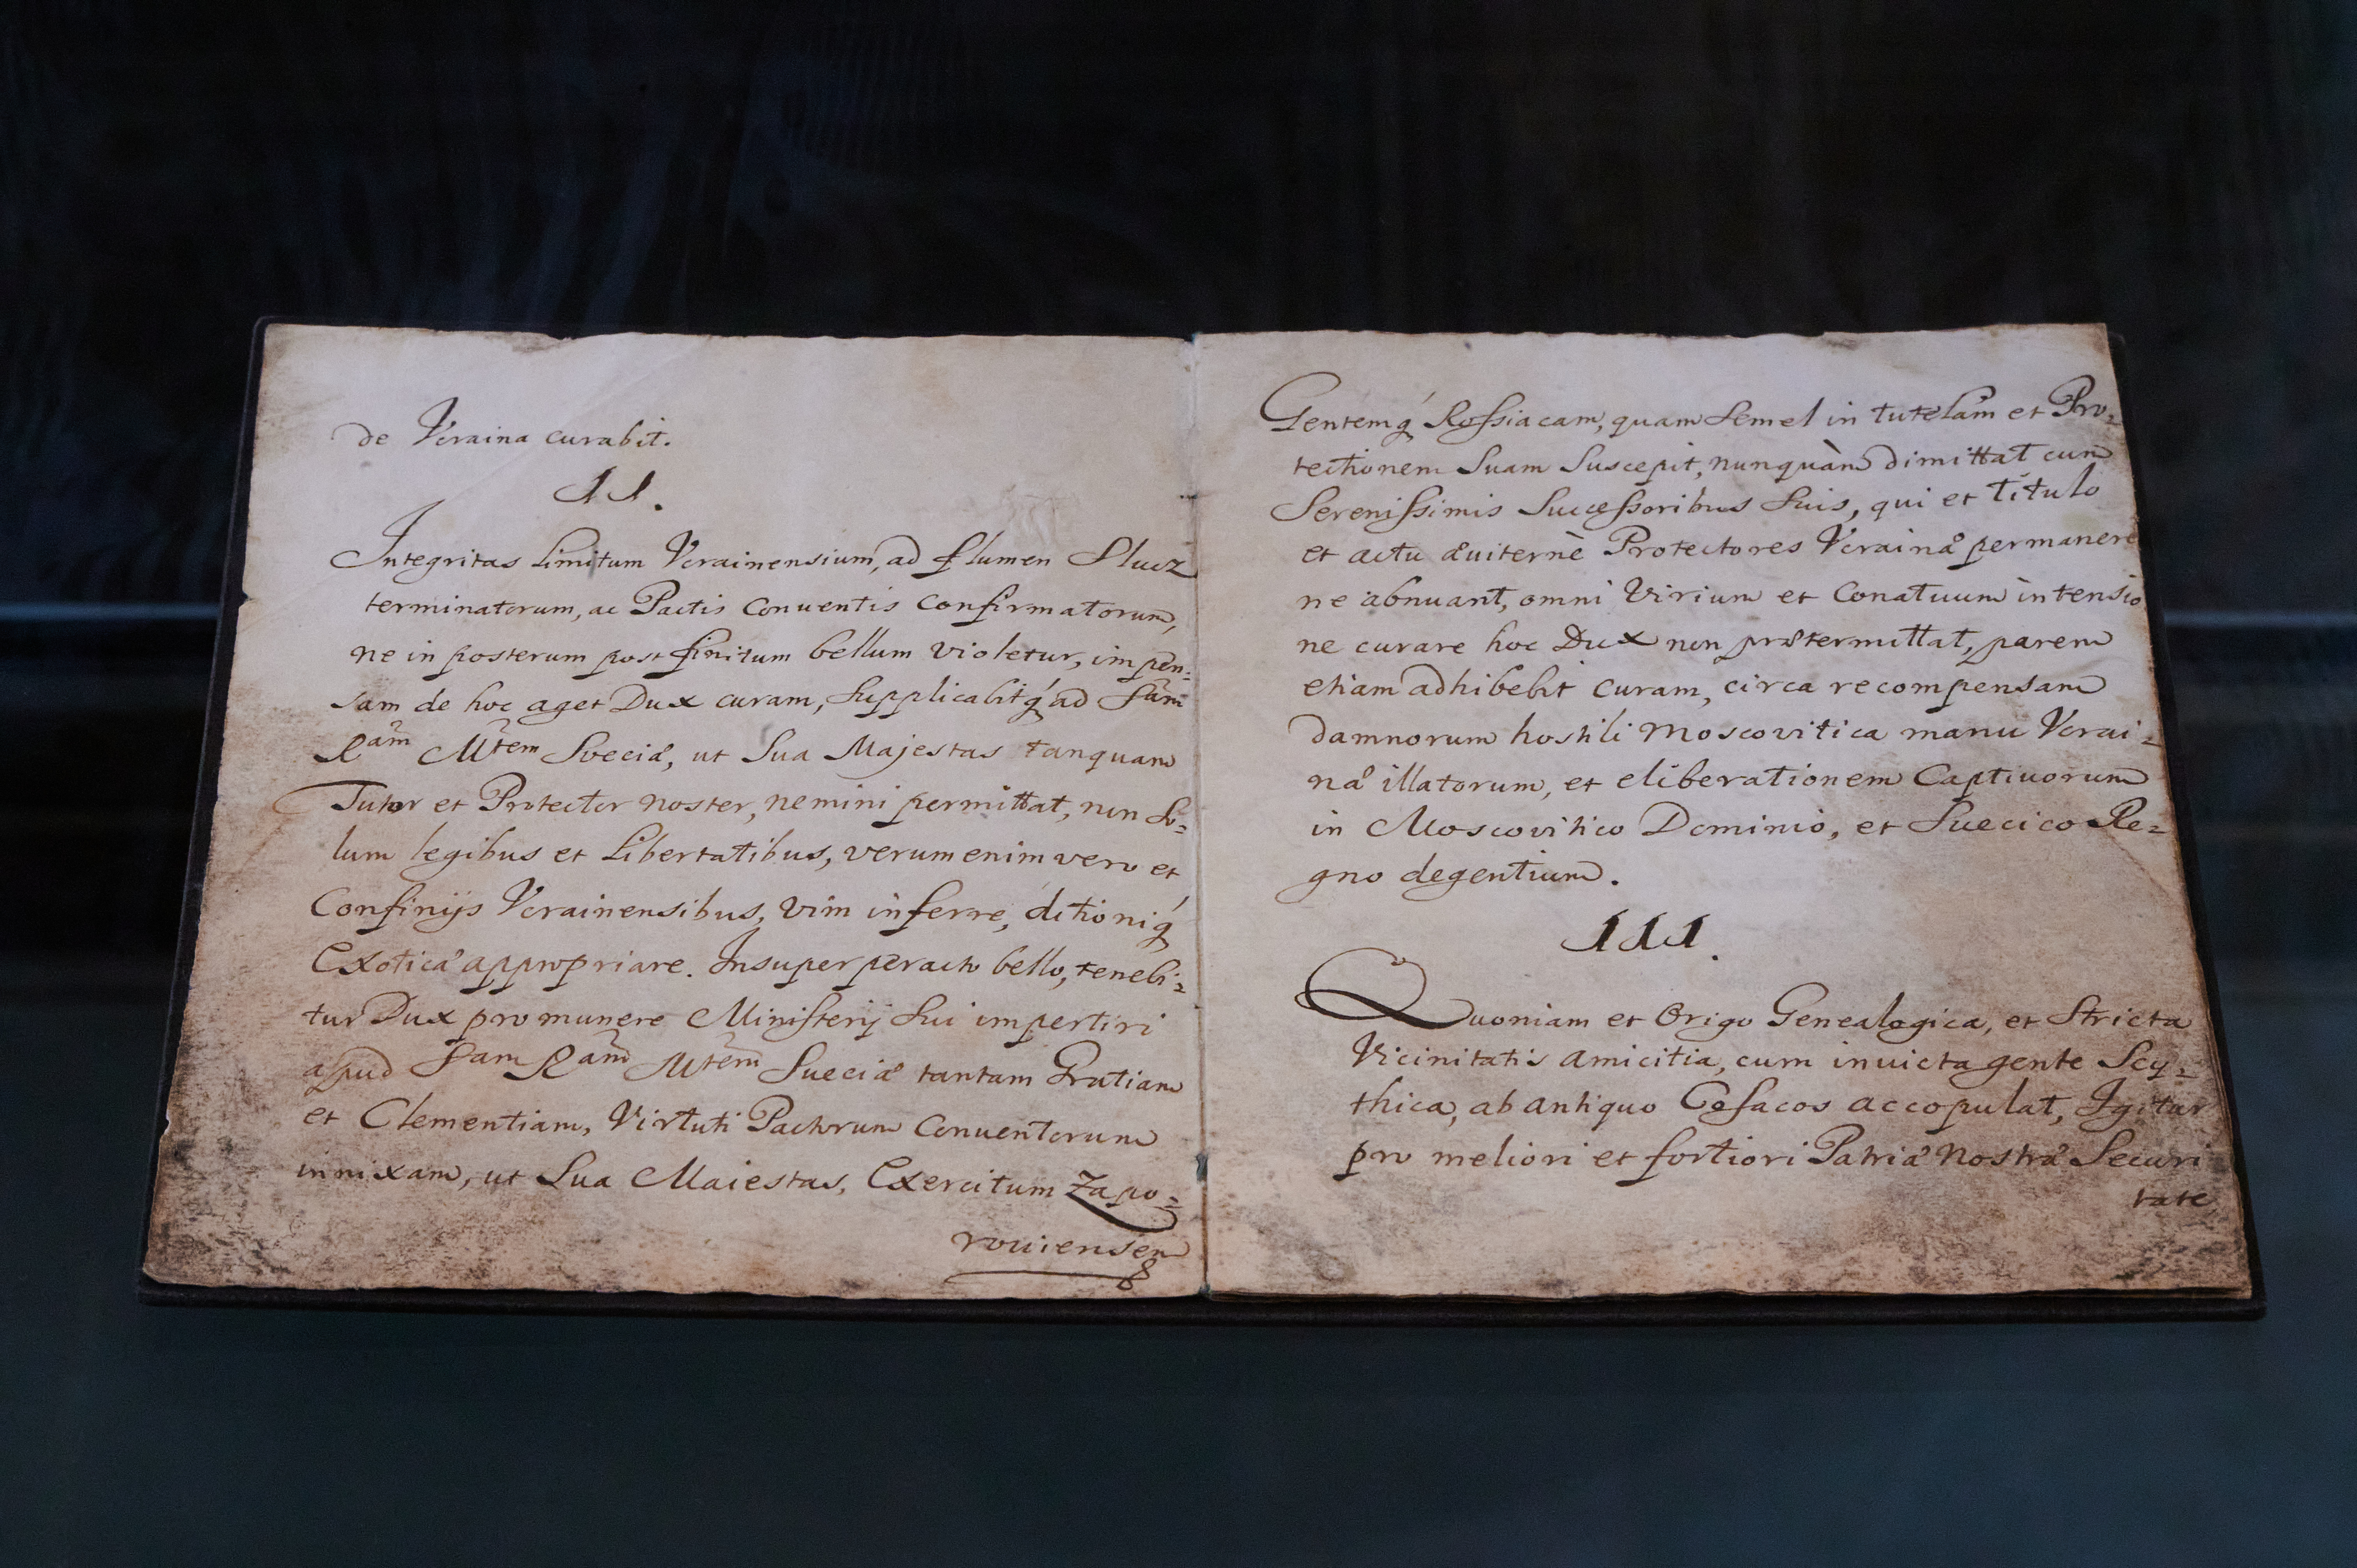 de Vcraina curabit.
II.
Integritas limitum Vcrainensium, ad flumen Slucz
terminatorum, ac Pactis Conuentis confirmatorum,
ne in posterum post finitum bellum violetur, impen=
sam de hoc aget Dux curam, supplicabitq́ ad Sam
Ram Mtem Sveciæ, ut Sua Majestas tanquam
Tutor et Protector noster, nemini permittat, non so=
lum legibus et Libertatibus, verum enim vero et
Confinijs Vcrainensibus, vim inferre, ditioniq́
Exoticæ appropriare. Insuper peracto bello, tenebi=
tur Dux pro munere Ministerij sui impertiri
apud Sam Ram Mtem Sueciæ tantam Gratiam
et Clementiam, Virtuti Pactorum Conuentorum
innixam, ut Sua Maiestas, Exercitum Zapo=
rouiensem
Gentemq́ Rossiacam, quam semel in tutelam et Pro=
tectionem Suam Suscepit, nunquàm dimittat cum
Serenissimis Successoribus Suis, qui et titulo
et actu æuiternè Protectores Vcrainæ permanere
ne abnuant, omni Virium et Conatuum intensio
ne curare hoc Dux non prætermittat, parem
etiam adhibebit curam, circa recompensam
damnorum hostili Moscovitica manu Vcrai=
næ illatorum, et eliberationem Captiuorum
in Moscovitico Dominio, et Suecico Re=
gno degentium.
III.
Quoniam et Origo Genealogica, et Stricta
Vicinitatis amicitia, cum inuicta gente Scy=
thica, ab antiquo Cosacos accopulat, Igitur
pro meliori et fortiori Patriæ Nostræ Securi
tate